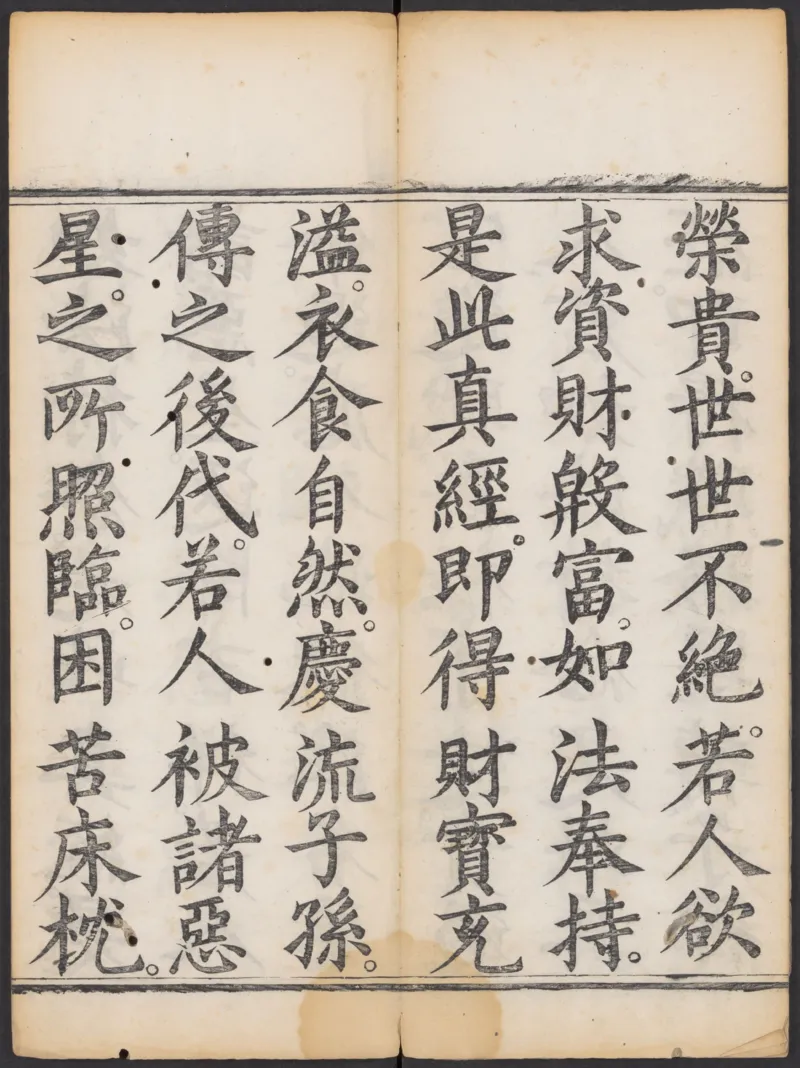 榮貴。世世不絶。若人欲
求資財殷富。如法奉持。
是此真經。即得財寶充
溢。衣食自然。慶流子孫。
傳之後代。若人被諸惡
星。之所照臨。困苦床枕。